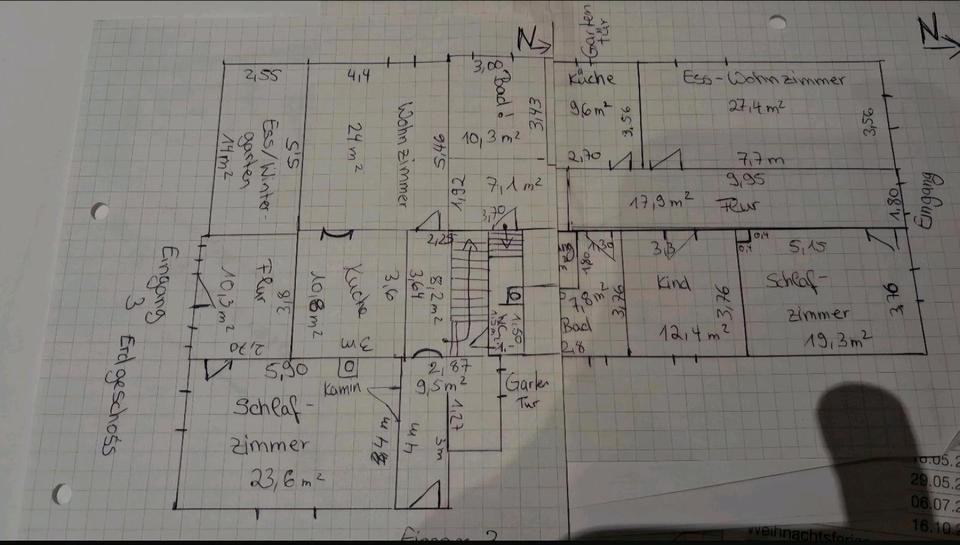 N
Garten
tür
N
2,55
4,4
3,00
Bad!
10,3 m²
3,43
Küche
9,6 m²
3,56
2,70
Ess-Wohnzimmer
27,4 m²
3,56
7,7 m
Ess/Winter
garten
14 m²
5,5
24 m²
Wohnzimmer
5,46
1,92
7,1 m²
3,70
9,95
17,9 m²
Flur
1,80
Eingang
Eingang
3
Erdgeschoss
Flur
10,3 m²
3,8
2,70
Küche
10,8 m²
3,6
3m
2,25
8,2 m²
3,64
1,50
1,80
7,8 m²
Bad
2,8
3,76
3,3
Kind
12,4 m²
3,76
0,4
0,4
5,15
Schlaf-
zimmer
19,3 m²
3,76
5,90
Kamin
Schlaf-
zimmer
23,6 m²
4m
2,87
9,5 m²
1,27
4m
3m
Garten
Tür
Eingang 2
16.05.2
29.05.2
06.07.2
16.10.2
Weihnachtsferien